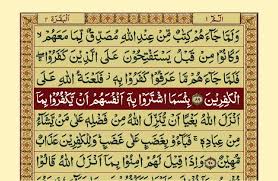 الٓمّٓ ١
البقرة ٢
وَلَمَّا جَآءَهُمْ كِتٰبٌ مِّنْ عِنْدِ اللّٰهِ مُصَدِّقٌ لِّمَا مَعَهُمْ ۙ
وَكَانُوْا مِنْ قَبْلُ يَسْتَفْتِحُوْنَ عَلَى الَّذِيْنَ كَفَرُوْا ۚ
فَلَمَّا جَآءَهُمْ مَّا عَرَفُوْا كَفَرُوْا بِهٖ ۫ فَلَعْنَةُ اللّٰهِ عَلَى
الْكٰفِرِيْنَ ﴿۸۹﴾ بِئْسَمَا اشْتَرَوْا بِهٖۤ اَنْفُسَهُمْ اَنْ يَّكْفُرُوْا بِمَاۤ
اَنْزَلَ اللّٰهُ بَغْيًا اَنْ يُّنَزِّلَ اللّٰهُ مِنْ فَضْلِهٖ عَلٰى مَنْ يَّشَآءُ
مِنْ عِبَادِهٖ ۚ فَبَآءُوْ بِغَضَبٍ عَلٰى غَضَبٍ ؕ وَلِلْكٰفِرِيْنَ عَذَابٌ
مُّهِيْنٌ ﴿۹۰﴾ وَاِذَا قِيْلَ لَهُمْ اٰمِنُوْا بِمَاۤ اَنْزَلَ اللّٰهُ قَالُوْا